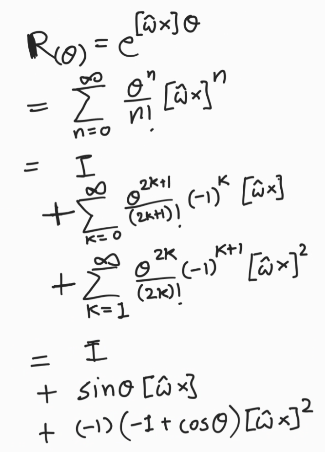 R(θ) = e^{[ω̂×]θ}
= ∑_{n=0}^{∞} θ^n/n! [ω̂×]^n
= I
+ ∑_{k=0}^{∞} θ^{2k+1}/(2k+1)! (-1)^k [ω̂×]
+ ∑_{k=1}^{∞} θ^{2k}/(2k)! (-1)^{k+1} [ω̂×]^2
= I
+ sinθ [ω̂×]
+ (-1)(-1 + cosθ)[ω̂×]^2